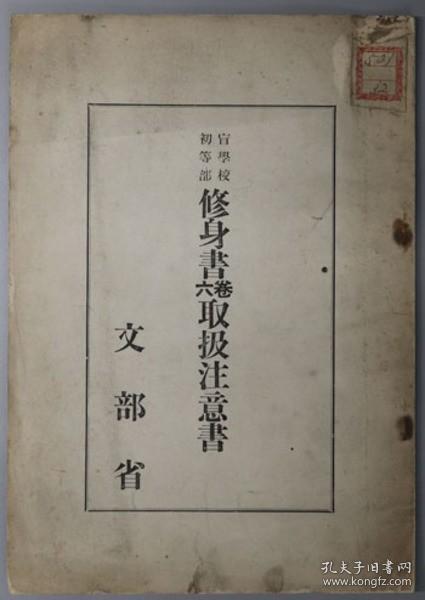 盲學校
初等部
修身書卷六取扱注意書
文部省
孔夫子旧书网
www.kongfz.com